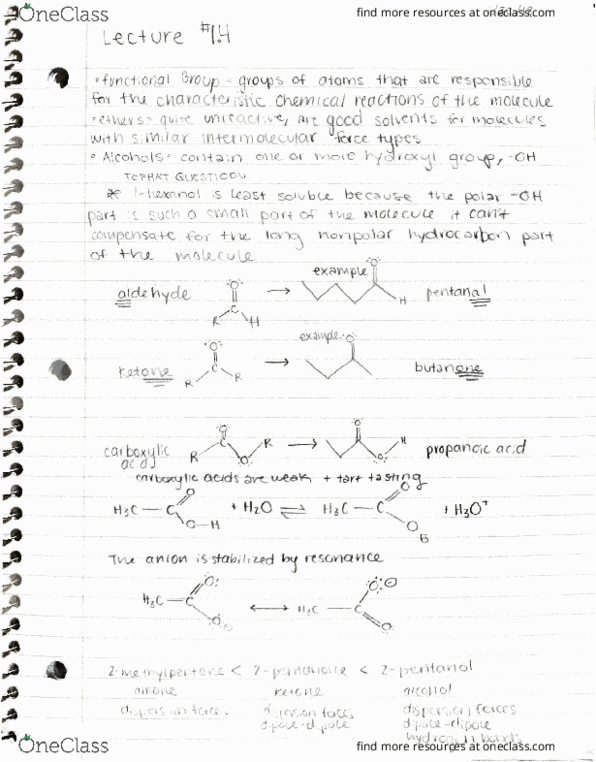 OneClass
find more resources at oneclass.com
Lecture #1.4
• functional Group = groups of atoms that are responsible
for the characteristic chemical reactions of the molecule
• ethers = quite unreactive, are good solvents for molecules
with similar intermolecular force types
• Alcohols = contain one or more hydroxyl group, -OH
TOPHAT QUESTION
* 1-hexanol is least soluble because the polar -OH
part is such a small part of the molecule it can't
compensate for the long nonpolar hydrocarbon part
of the molecule
aldehyde O R C H → example O H pentanal
ketone O C R R → example O butanone
carboxylic acid O C R O R → O O H propanoic acid
carboxylic acids are weak + tart tasting
H3C - C O O-H + H2O ⇌ H3C - C O O + H3O+
The anion is stabilized by resonance
H3C - C O O ⊖ ↔ H3C - C O ⊖ O
2-methylpentane < 2-pentanone < 2-pentanol
alkane ketone alcohol
dispersion force dispersion forces dispersion forces
dipole-dipole dipole-dipole
hydrogen bonds
OneClass
find more resources at oneclass.com